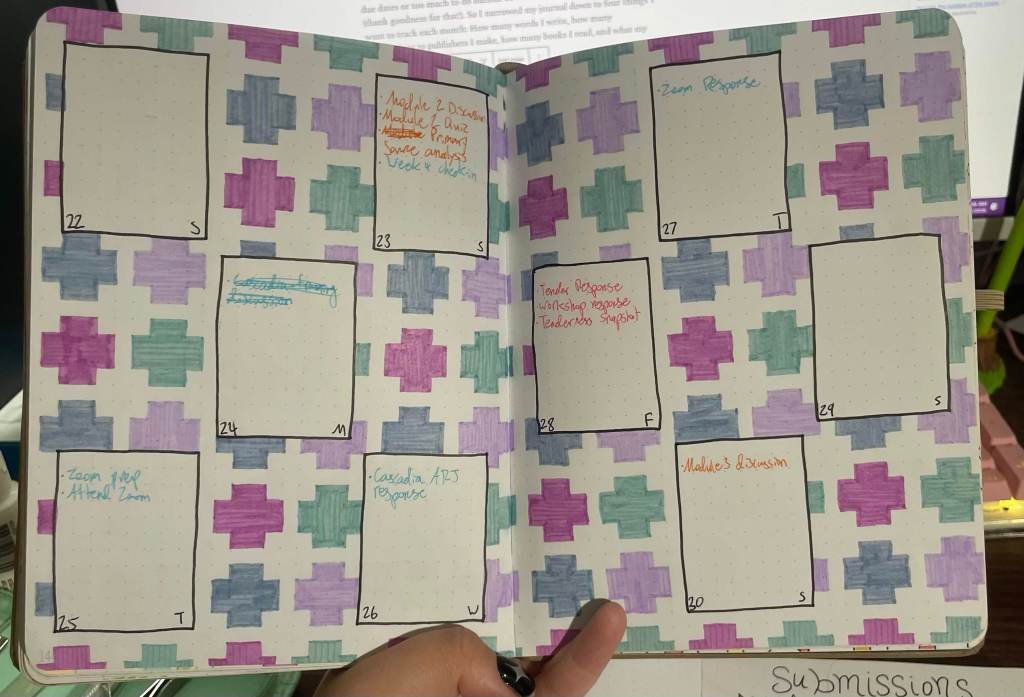 due dates or too much to do
(thank goodness for that). So I narrowed my journal down to four things I
want to track each month. How many words I write, how many
to publishers I make, how many books I read, and what my
22 S
· Module 2 Discussion
· Module 2 Quiz
· Primary
Source analysis
· Week 4 check-in
23 S
24 M
· Zoom prep
· Attend Zoom
25 T
· Cascadia ARJ
response
26 W
· Zoom Response
27 T
· Tender Response
· workshop response
· Tenderness Snapshot
28 F
29 S
· Module 3 discussion
30 S
Submissions